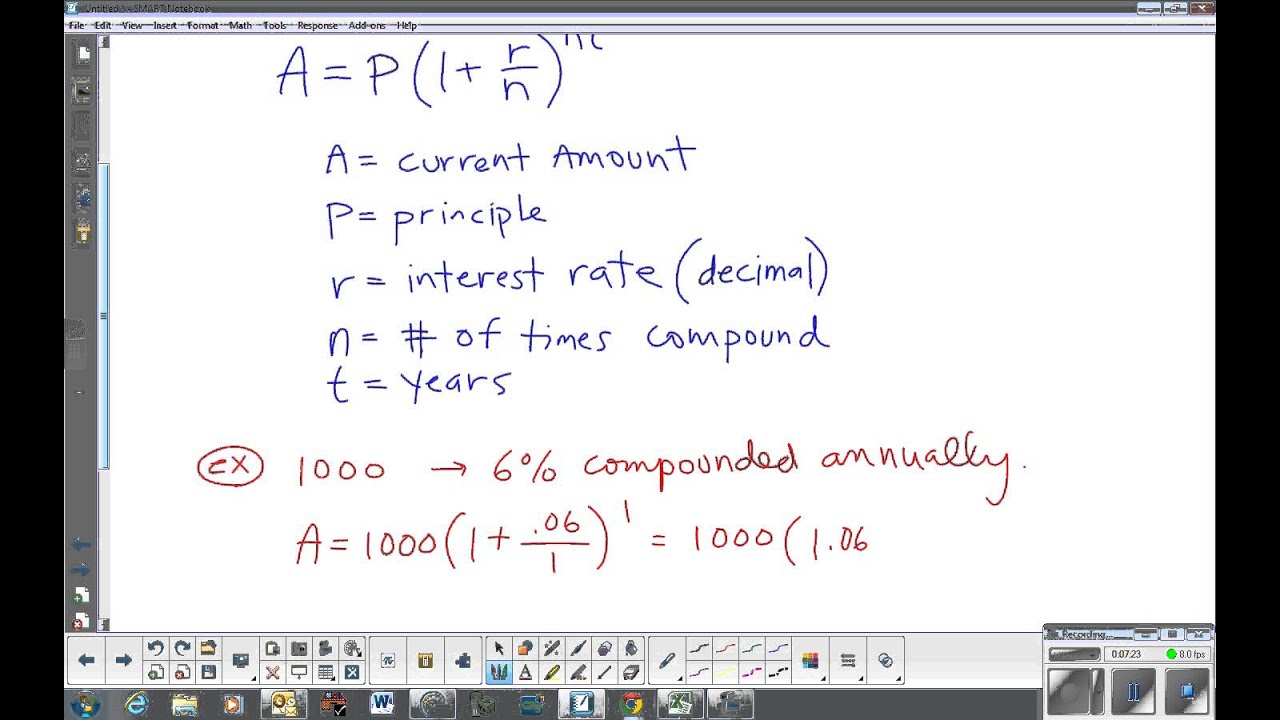 Untitled * - SMART Notebook
File Edit View Insert Format Math Tools Response Add-ons Help
A = P(1 + r/n)^nt
A = current Amount
P = principle
r = interest rate (decimal)
n = # of times compound
t = years
EX 1000 → 6% compounded annually.
A = 1000(1 + .06/1)^1 = 1000(1.06
Recording...
0:07:23 8.0 fps